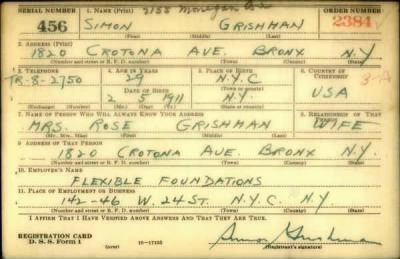 SERIAL NUMBER 1. NAME (Print) ORDER NUMBER
456 SIMON GRISHMAN 2384
(First) (Middle) (Last)
2. ADDRESS (Print)
1820 CROTONA AVE. BRONX N.Y
(Number and street or R. F. D. number) (Town) (County) (State)
3. TELEPHONE 4. AGE IN YEARS 5. PLACE OF BIRTH 6. COUNTRY OF CITIZENSHIP
TR-8-2750 29 N.Y.C
DATE OF BIRTH (Town or county)
2 1911 N.Y. USA
(Exchange) (Number) (Mo.) (Day) (Yr.) (State or country)
7. NAME OF PERSON WHO WILL ALWAYS KNOW YOUR ADDRESS 8. RELATIONSHIP OF THAT PERSON
MRS. ROSE GRISHMAN WIFE
(Mr., Mrs., Miss) (First) (Middle) (Last)
9. ADDRESS OF THAT PERSON
1820 CROTONA AVE. BRONX N.Y
(Number and street or R. F. D. number) (Town) (County) (State)
10. EMPLOYER'S NAME
FLEXIBLE FOUNDATIONS
11. PLACE OF EMPLOYMENT OR BUSINESS
142-46 W. 24 ST. N.Y.C. N.Y.
(Number and street or R. F. D. number) (Town) (County) (State)
I AFFIRM THAT I HAVE VERIFIED ABOVE ANSWERS AND THAT THEY ARE TRUE.
REGISTRATION CARD
D. S. S. Form 1 16-17105 (Registrant's signature)